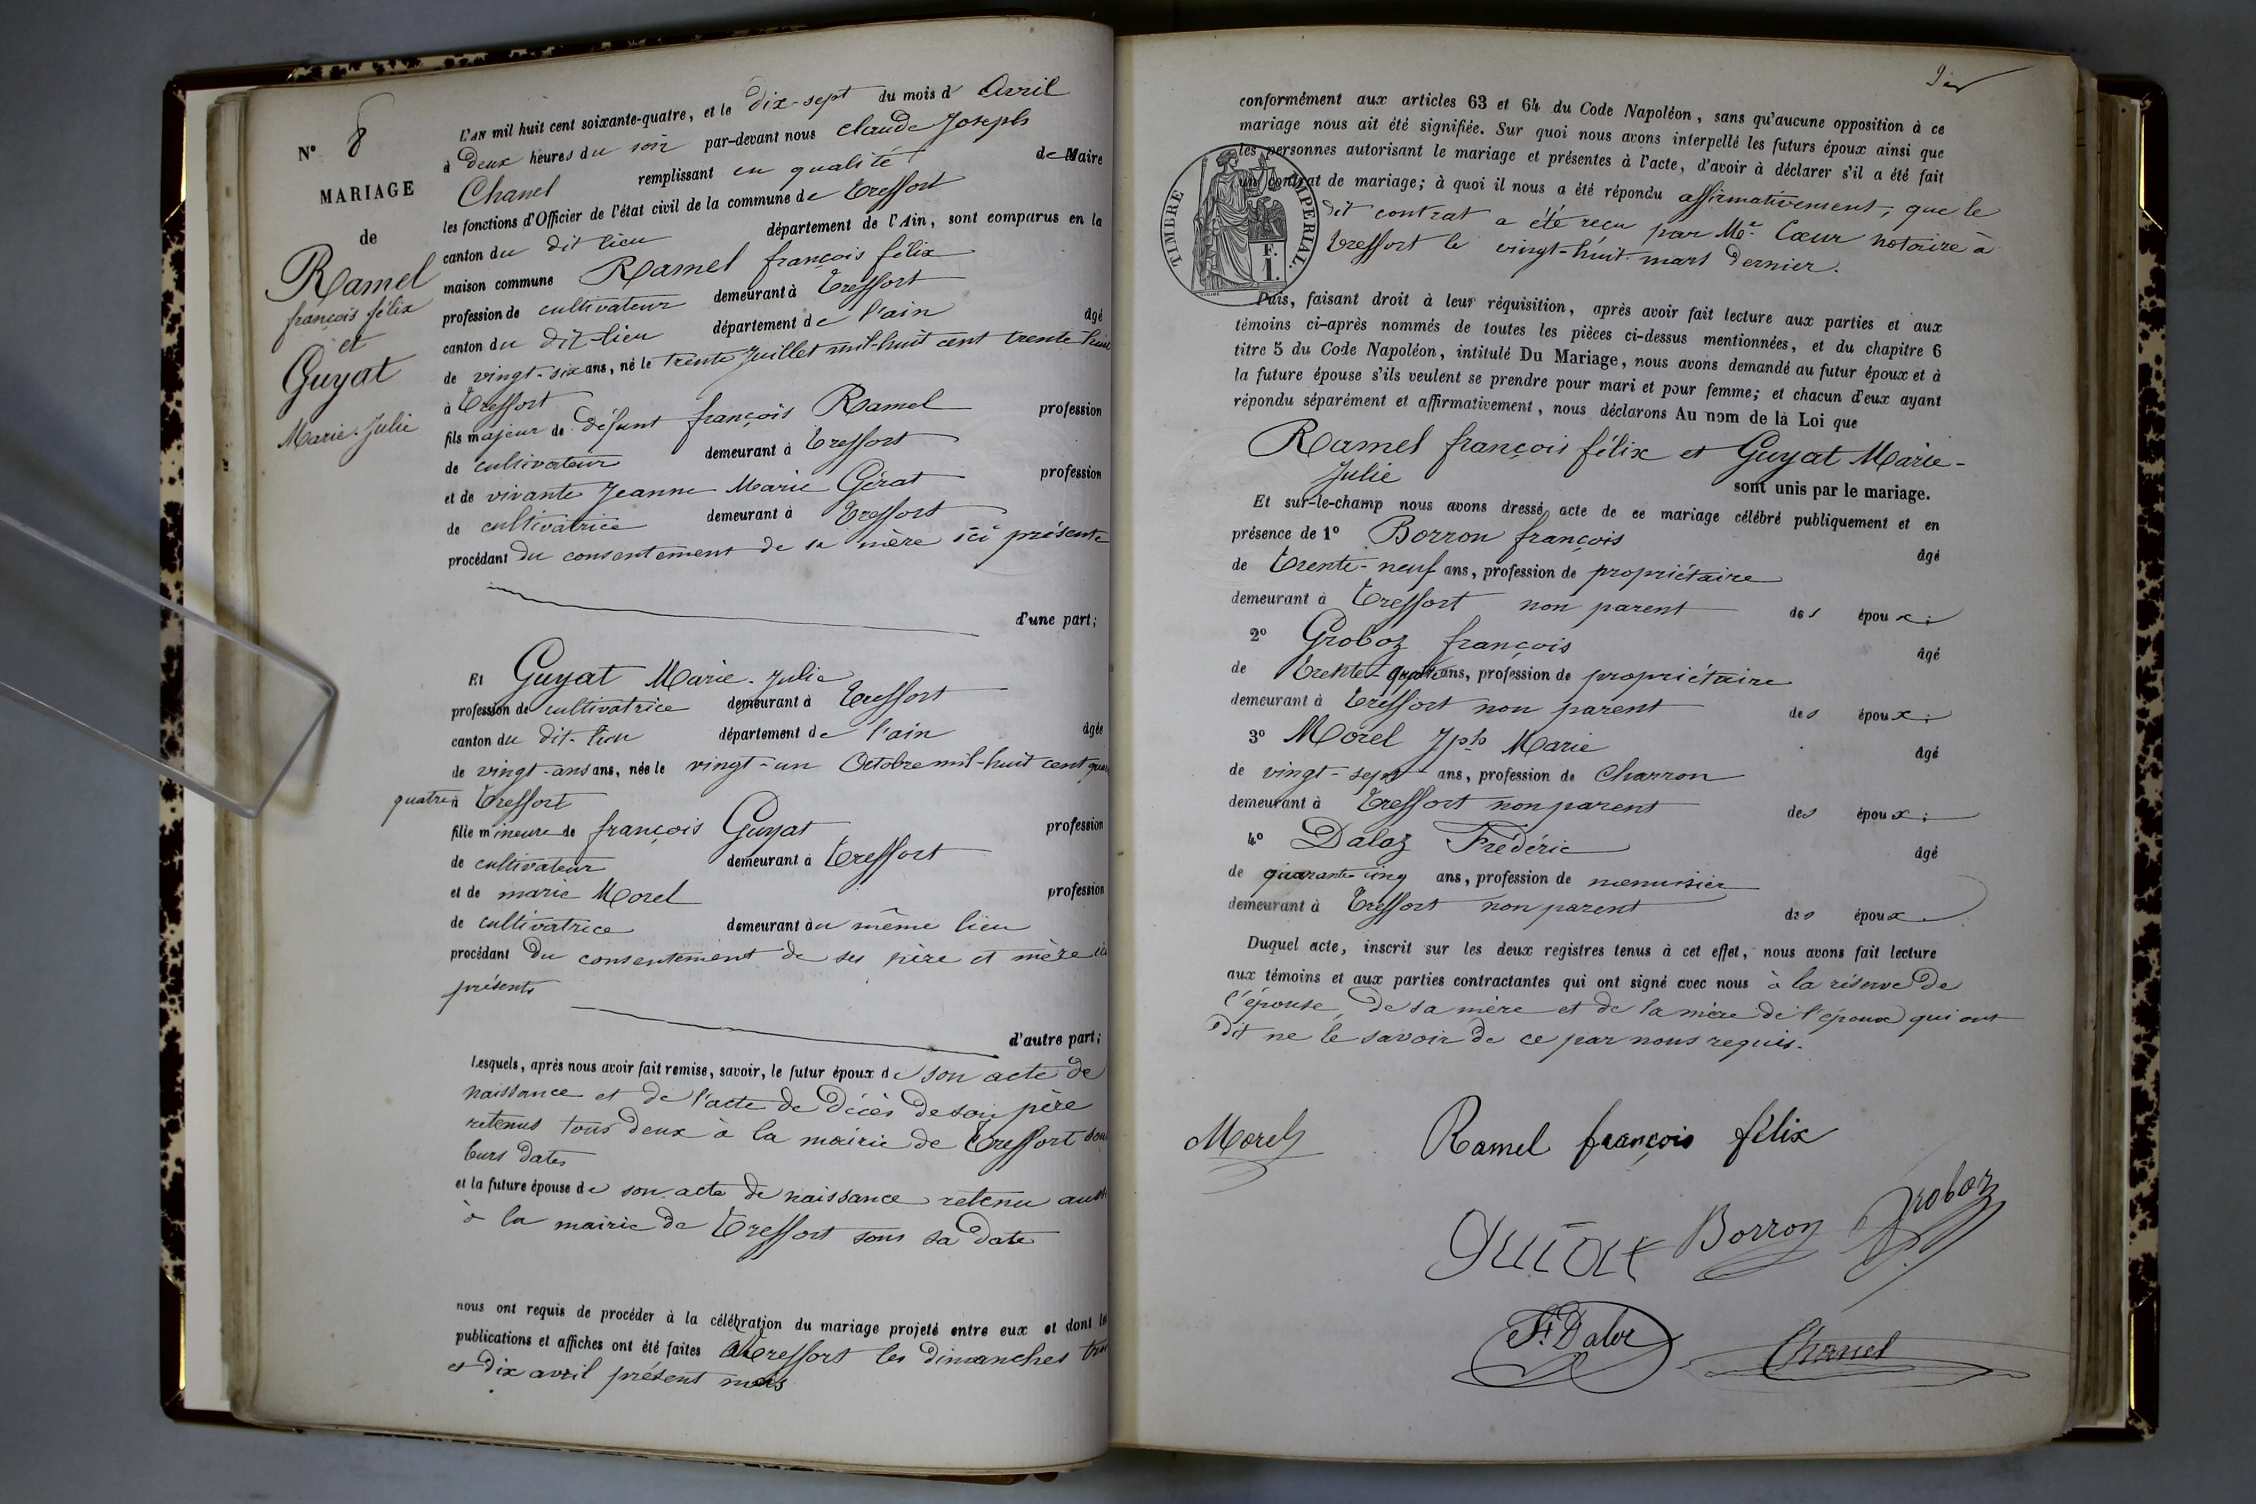 N° 8
MARIAGE
de
Ramel
françois félix
et
Guyat
Marie-Julie
L'AN mil huit cent soixante-quatre, et le dix-sept du mois d'Avril
à deux heures du soir par-devant nous Claude Joseph
Chanel remplissant en qualité de Maire
les fonctions d'Officier de l'état civil de la commune de Treffort
canton du dit lieu département de l'Ain, sont comparus en la
maison commune Ramel françois félix
profession de cultivateur demeurant à Treffort
canton du dit-lieu département de l'ain âgé
de vingt-six ans, né le trente Juillet mil-huit cent trente-huit
à Treffort
fils majeur de défunt françois Ramel profession
de cultivateur demeurant à Treffort
et de vivante Jeanne Marie Gérat profession
de cultivatrice demeurant à Treffort
procédant du consentement de sa mère ici présente
d'une part;
Et Guyat Marie-Julie
profession de cultivatrice demeurant à Treffort
canton du dit-lieu département de l'ain âgée
de vingt-ans ans, née le vingt-un Octobre mil-huit cent
quatre à Treffort
fille mineure de françois Guyat profession
de cultivateur demeurant à Treffort
et de marie Morel profession
de cultivatrice demeurant au même lieu
procédant du consentement de ses père et mère ici
présents
d'autre part;
Lesquels, après nous avoir fait remise, savoir, le futur époux de son acte de
naissance et de l'acte de décès de son père
retenus tous deux à la mairie de Treffort sous
leurs dates
et la future épouse de son acte de naissance retenu aussi
à la mairie de Treffort sous sa date
nous ont requis de procéder à la célébration du mariage projeté entre eux et dont les
publications et affiches ont été faites à Treffort les dimanches trois
et dix avril présent mois
conformément aux articles 63 et 64 du Code Napoléon, sans qu'aucune opposition à ce
mariage nous ait été signifiée. Sur quoi nous avons interpellé les futurs époux ainsi que
les personnes autorisant le mariage et présentes à l'acte, d'avoir à déclarer s'il a été fait
un contrat de mariage; à quoi il nous a été répondu affirmativement, que le
dit contrat a été reçu par Me Cœur notaire à
Treffort le vingt-huit mars dernier.
TIMBRE IMPERIAL.
1 F.
Puis, faisant droit à leur réquisition, après avoir fait lecture aux parties et aux
témoins ci-après nommés de toutes les pièces ci-dessus mentionnées, et du chapitre 6
titre 5 du Code Napoléon, intitulé Du Mariage, nous avons demandé au futur époux et à
la future épouse s'ils veulent se prendre pour mari et pour femme; et chacun d'eux ayant
répondu séparément et affirmativement, nous déclarons Au nom de la Loi que
Ramel françois félix et Guyat Marie-
Julie
sont unis par le mariage.
Et sur-le-champ nous avons dressé acte de ce mariage célébré publiquement et en
présence de 1° Borron françois âgé
de trente-neuf ans, profession de propriétaire
demeurant à Treffort non parent des époux;
2° Groboz françois âgé
de trente-quatre ans, profession de propriétaire
demeurant à Treffort non parent des époux;
3° Morel Jph Marie âgé
de vingt-sept ans, profession de Charron
demeurant à Treffort non parent des époux;
4° Daloz Frédéric âgé
de quarante cinq ans, profession de menuisier
demeurant à Treffort non parent des époux.
Duquel acte, inscrit sur les deux registres tenus à cet effet, nous avons fait lecture
aux témoins et aux parties contractantes qui ont signé avec nous à la réserve de
l'épouse, de sa mère et de la mère de l'époux qui ont
dit ne le savoir de ce par nous requis.
Morel Ramel françois félix
Borron Groboz
F. Daloz Chanel